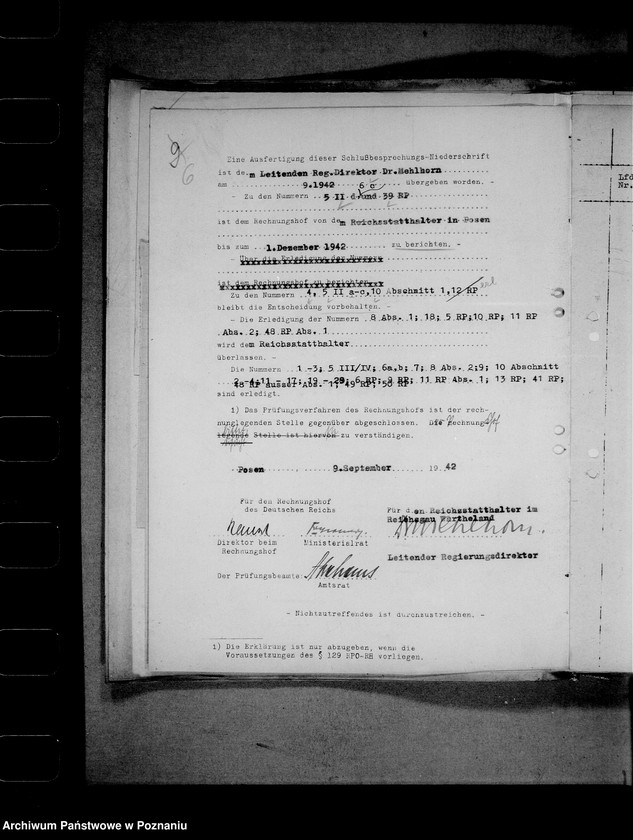 Eine Ausfertigung dieser Schlußbesprechungs-Niederschrift
ist dem Leitenden Reg.Direktor Dr.Mehlhorn
am 9.1942 übergeben worden. -
- Zu den Nummern 5 II d und 39 RP
ist dem Rechnungshof von dem Reichsstatthalter in Posen
bis zum 1.Dezember 1942 zu berichten. -
- Über die Erledigung der Nummern
ist dem Rechnungshof zu berichten
Zu den Nummern 4, 5 II a-c,10 Abschnitt 1,12 RP
bleibt die Entscheidung vorbehalten. -
- Die Erledigung der Nummern 8 Abs. 1; 18; 5 RP;10 RP; 11 RP
Abs. 2; 48 RP Abs. 1
wird dem Reichsstatthalter
überlassen. -
Die Nummern 1 -3; 5 III/IV; 6a,b; 7; 8 Abs. 2;9; 10 Abschnitt
2 -4;11 - 17; 19 - 29; 6 RP; 9 RP; 11 RP Abs. 1; 13 RP; 41 RP;
48 RP ausser Abs. 1; 49 RP; 58 RP
sind erledigt.
1) Das Prüfungsverfahren des Rechnungshofs ist der rech-
nunglegenden Stelle gegenüber abgeschlossen. Die Rechnungs
legende Stelle ist hiervon zu verständigen.
Posen, 9.September 1942
Für den Rechnungshof
des Deutschen Reichs
Für den Reichsstatthalter im
Reichsgau Wartheland
Direktor beim
Rechnungshof
Ministerialrat
Leitender Regierungsdirektor
Der Prüfungsbeamte:
Amtsrat
- Nichtzutreffendes ist durchzustreichen. -
1) Die Erklärung ist nur abzugeben, wenn die
Voraussetzungen des § 129 RPO-RH vorliegen.
Lfd
Nr.
Archiwum Państwowe w Poznaniu